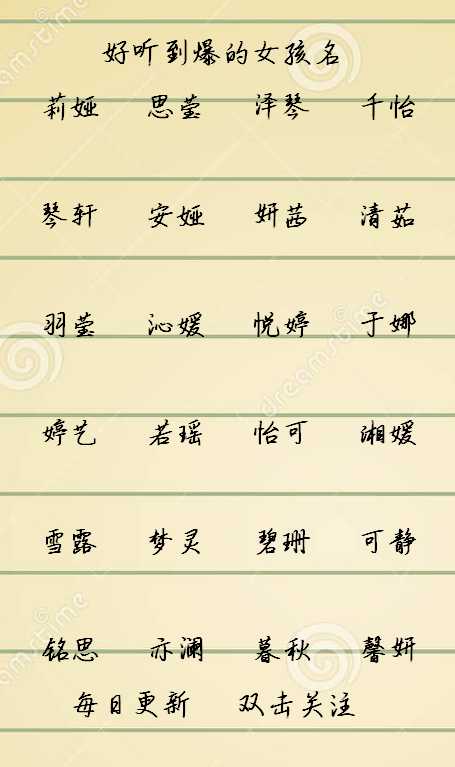 好听到爆的女孩名
莉娅 思莹 泽琴 千怡
琴轩 安娅 妍茜 清茹
羽莹 沁媛 悦婷 于娜
婷艺 若瑶 怡可 湘媛
雪露 梦灵 碧珊 可静
铭思 亦澜 暮秋 馨妍
每日更新 双击关注
dreamstime
dreamstime
dreamstime